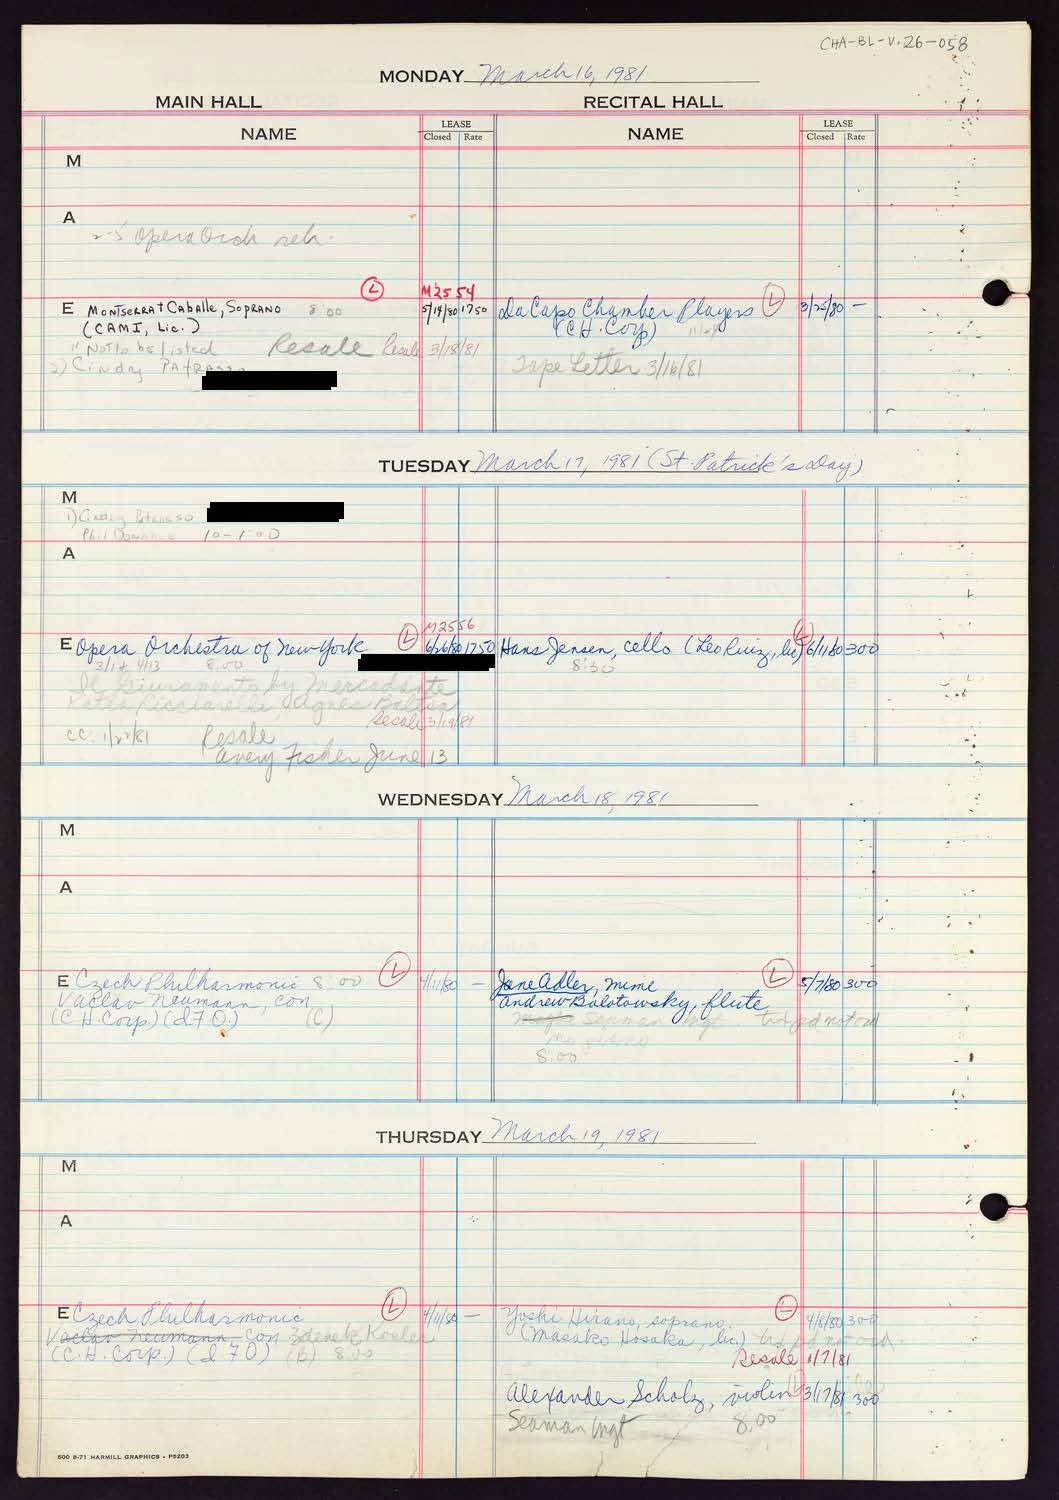 CHA-BL-V.26-058
MONDAY March 16, 1981
MAIN HALL
RECITAL HALL
NAME
LEASE
Closed Rate
NAME
LEASE
Closed Rate
M
A
2-5 Opera Orch reh.
L
M2554
E Montserrat Caballe, Soprano 8:00
5/14/80 1750
(CAMI, Lic.)
Not to be listed Resale Resale 3/18/81
2) Cindy
Da Capo Chamber Players L 3/25/80 —
(C.H. Corp)
Tape Letter 3/16/81
TUESDAY March 17, 1981 (St Patrick's Day)
M
1) Cindy
Phil Donahue 10-1:00
A
M2556
E Opera Orchestra of New York L 6/26/80 1750
3/1 + 4/13 8:00
Il Giuramento by Mercadante
Katia Ricciarelli, Agnes Baltsa
Resale 3/19/81
CC: 1/22/81 Resale
Avery Fisher June 13
Hans Jensen, cello (Leo Ruiz, lic) L 6/11/80 300
8:30
WEDNESDAY March 18, 1981
M
A
E Czech Philharmonic 8:00 L 4/11/80 —
Vaclav Neumann, con
(C.H. Corp) (d70) (C)
Jane Adler, mime L 5/7/80 300
Andrew Bolotowsky, flute
Seaman Mgt
no piano
8:00
THURSDAY March 19, 1981
M
A
E Czech Philharmonic L 4/11/80 —
Vaclav Neumann, con Zdenek Kosler
(C.H. Corp.) (d70) (b) 8:00
Yoshi Hirano, soprano. 4/8/80 300
(Masako Hosaka, lic.)
Resale 1/7/81
Alexander Scholz, violin L 3/17/81 300
Seaman Mgt 8:00
500 8-71 HARMILL GRAPHICS - P5203